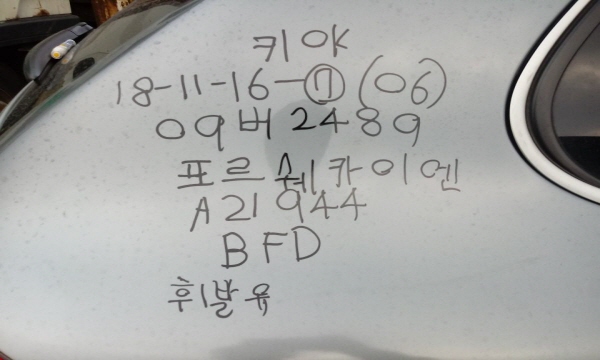 키아
18-11-16-⑰(06)
09버2489
포르쉐카이엔
A21944
BFD
휘발유